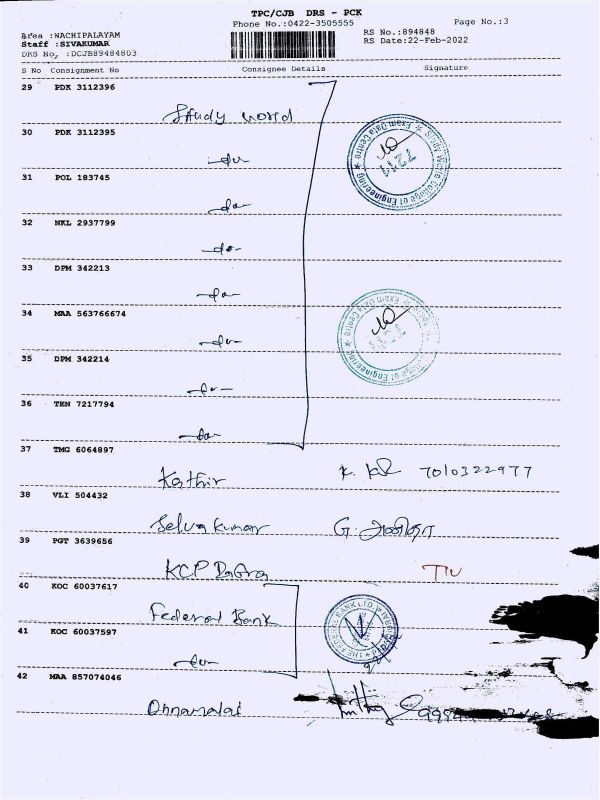 TPC/CJB DRS - PCK
Phone No.:0422-3505555 Page No.:3
Area :NACHIPALAYAM RS No.:894848
Staff :SIVAKUMAR RS Date:22-Feb-2022
DRS No, :DCJB89484803
S No Consignment No Consignee Details Signature
29 PDK 3112396
Study world
30 PDK 3112395
-do-
31 POL 183745
-do-
32 NKL 2937799
-do-
33 DPM 342213
-do-
34 MAA 563766674
-do-
35 DPM 342214
-do-
36 TKN 7217794
-do-
37 TMG 6064897
Kathir K. 7010322977
38 VLI 504432
Selvakumar G.
39 PGT 3639656
KCP
40 KOC 60037617
Federal Bank
41 KOC 60037597
-do-
42 MAA 857074046
College of Engineering ★ Exam Data Centre ★
College of Engineering ★ Exam Data Centre ★